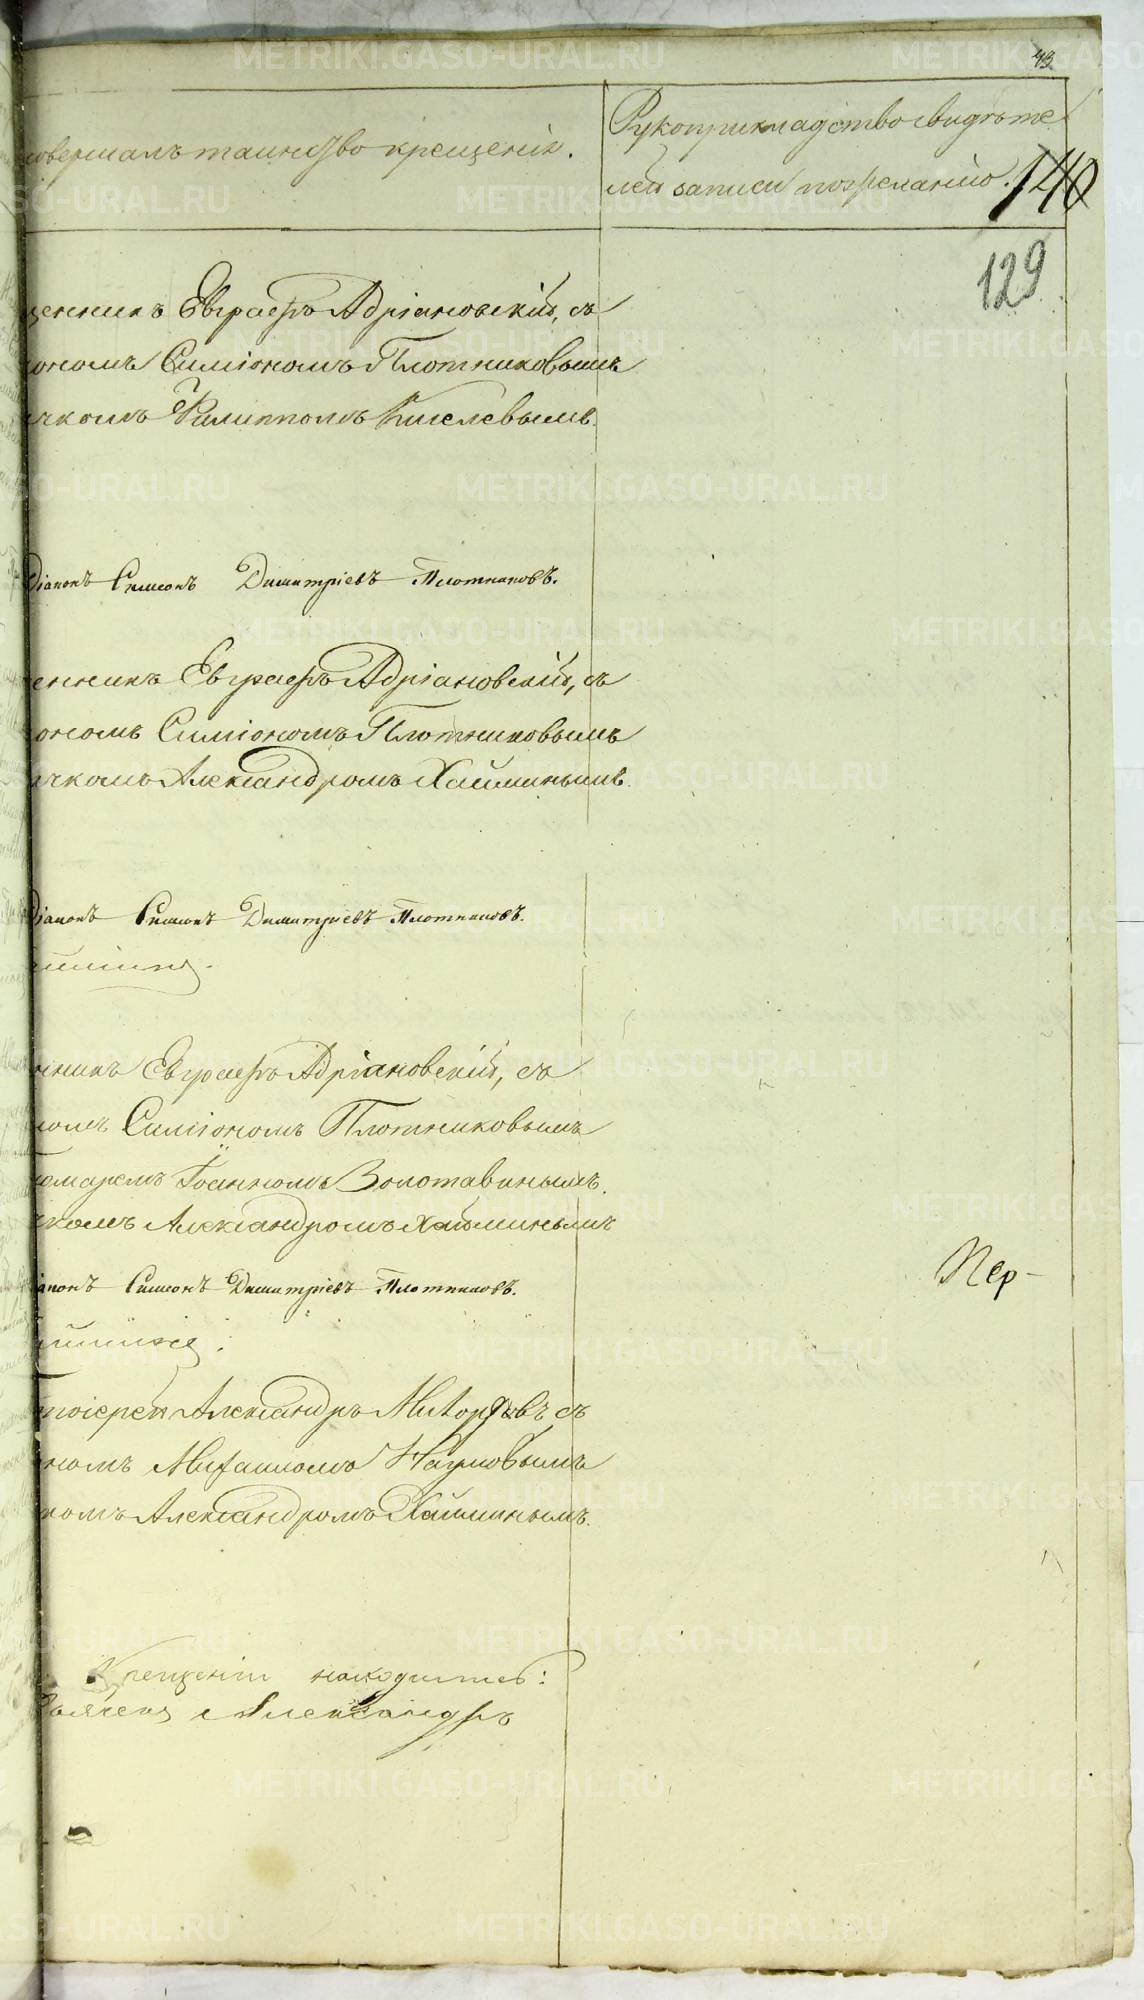 43.
совершалъ таинство крещенія.
Рукоприкладство свидѣте
лей записи по желанію.
140
129
щенникъ Евграфъ Адріановскій, съ
кономъ Симіономъ Плотниковымъ
ячкомъ Филиппомъ Киселевымъ.
Діаконъ Симеонъ Димитріевъ Плотниковъ.
енникъ Евграфъ Адріановскій, съ
ономъ Симіономъ Плотниковымъ
ячкомъ Александромъ Хайминымъ.
Діаконъ Симеонъ Димитріевъ Плотниковъ.
нникъ Евграфъ Адріановскій, съ
номъ Симіономъ Плотниковымъ
номаремъ Іоанномъ Золотавинымъ.
чкомъ Александромъ Хайминымъ
іаконъ Симеонъ Димитріевъ Плотниковъ.
тоіерей Александръ съ
номъ Михаиломъ Наумовымъ
комъ Александромъ Хайминымъ.
Пер-
Крещеніи находится:
Александръ